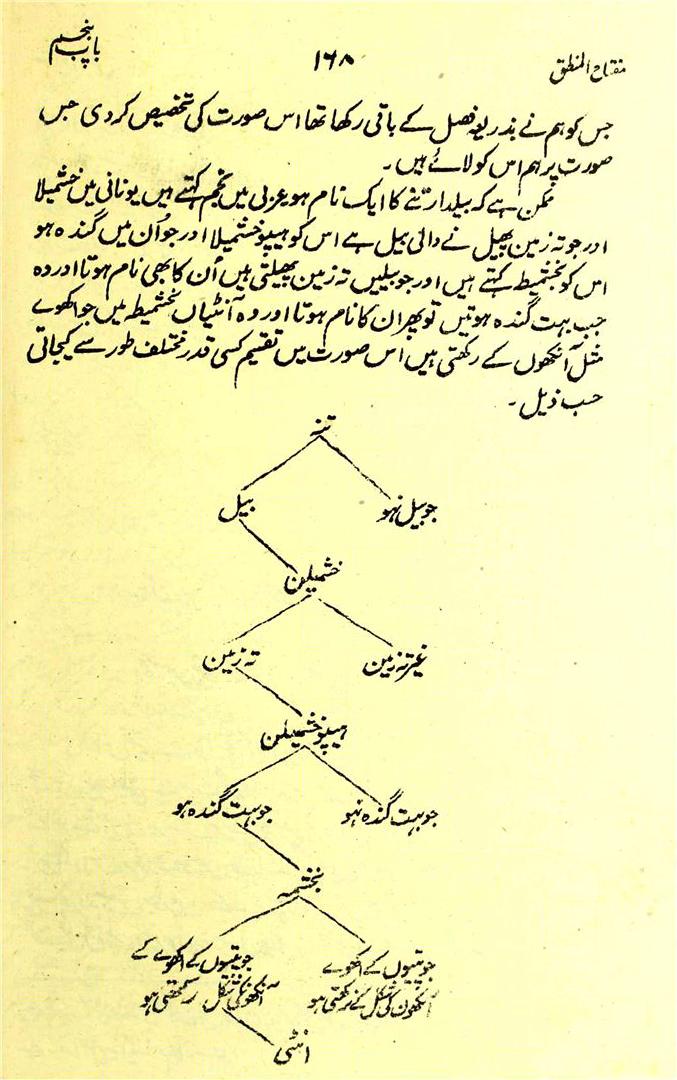 مفتاح المنطق ۱۶۸ باب پنجم
جس کو ہم نے بذریعہ فصل کے باقی رکھا تھا اس صورت کی تخصیص کر دی جس
صورت پر ہم اس کو لائے ہیں۔
ممکن ہے کہ بیلدار تنے کا ایک نام ہو عربی میں نجم کہتے ہیں یونانی میں خشمیلا
اور جو تہ زمین پھیل نے دالی بیل ہے اس کو ہیپو خشمیلا اور جو اُن میں گندہ ہو
اس کو کہتے ہیں اور جو بیلیں تہ زمین پھیلتی ہیں اُن کا بھی نام ہوتا اور وہ
جب بہت گندہ ہوتیں تو پھر ان کا نام ہوتا اور وہ آنٹیاں میں جو اکھوے
مثل آنکھوں کے رکھتی ہیں اس صورت میں تقسیم کسی قدر مختلف طور سے کیجاتی
حب ذیل۔
تنہ
جو بیل نہو بیل
خشمیلن
غیر تہ زمین تہ زمین
ہیپو خشمیلن
جو بہت گندہ نہو جو بہت گندہ ہو
نجشمہ
جو پتیوں کے اکھوے جو پتیوں کے اکھوے کے
آنکھون کی شکل کے نرکھتی ہو آنکھو نکی شکل رکھتی ہو
انٹی